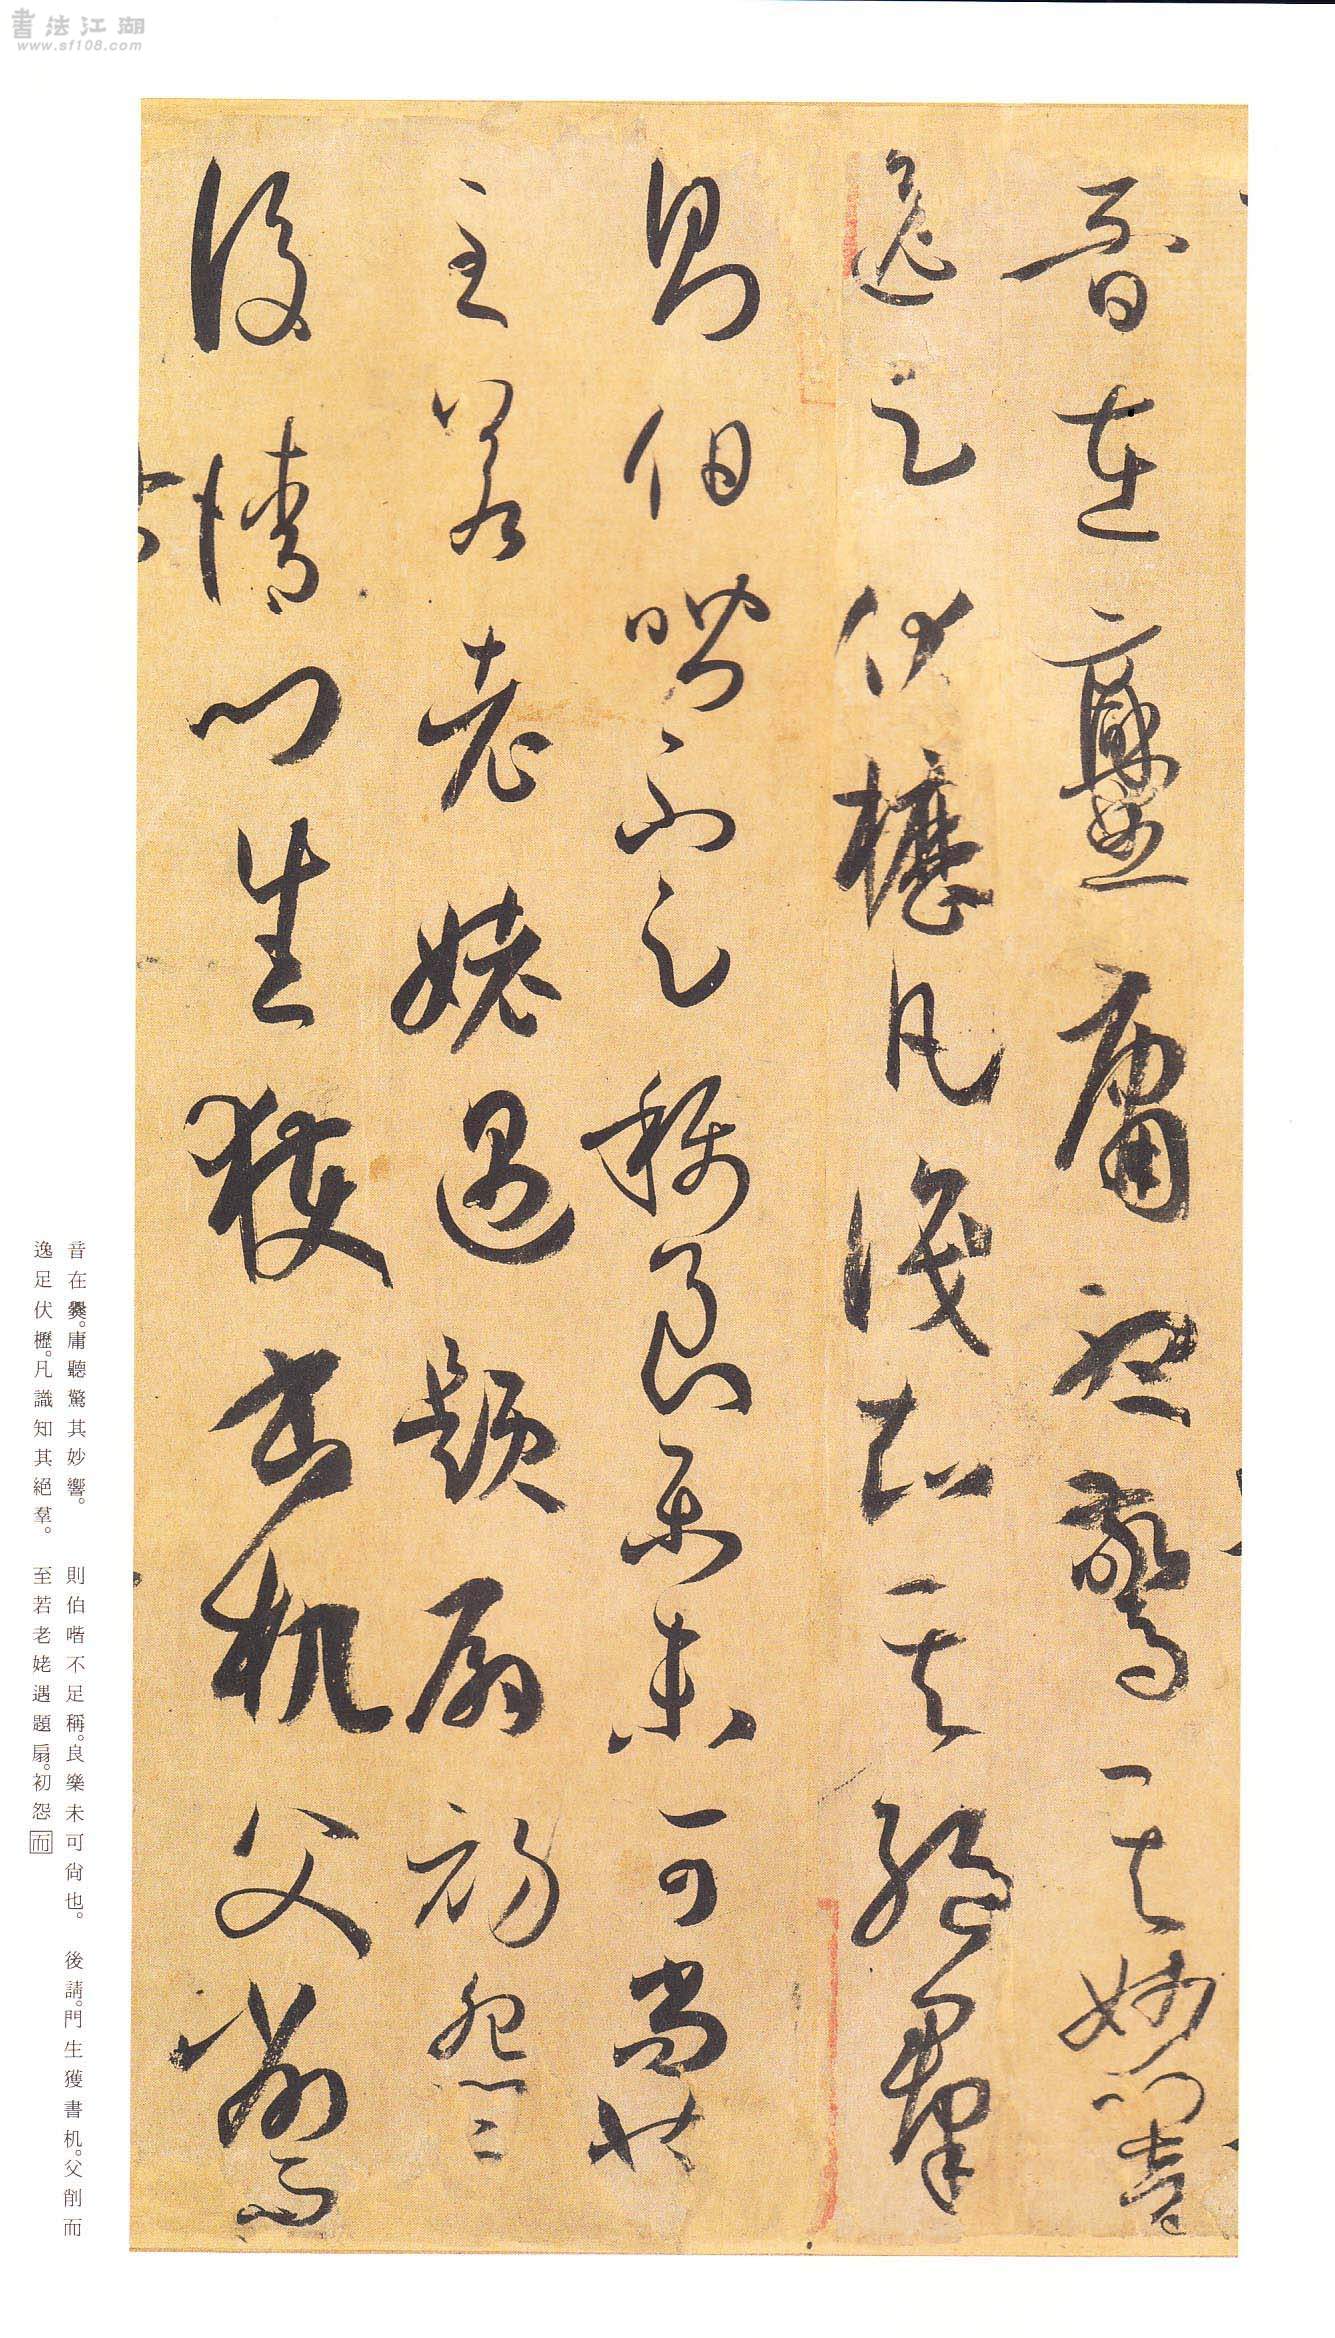 書法江湖
www.sf108.com
音在爨庸聽驚其妙響
逸足伏櫪凡識知其絕羣
則伯喈不足稱良樂未可尚也
至若老姥遇題扇初怨
後請門生獲書机父削而
音在爨。庸聽驚其妙響。
逸足伏櫪。凡識知其絕羣。
則伯喈不足稱。良樂未可尚也。
至若老姥遇題扇。初怨而
後請。門生獲書机。父削而